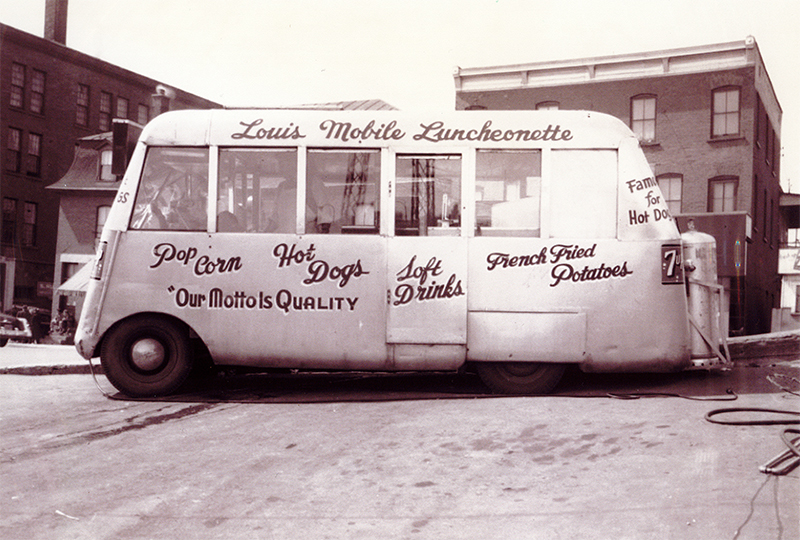 Louis Mobile Luncheonette
Pop
Corn
Hot
Dogs
"Our Motto Is Quality
Soft
Drinks
French Fried
Potatoes
for
Hot